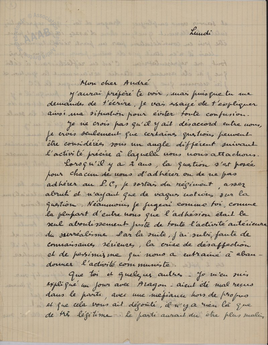 Lundi
Mon cher André
J'aurai préféré te voir, mais puisque tu me
demande de t'écrire, je vais essayer de t'expliquer
ainsi ma situation pour éviter toute confusion.
Je ne crois pas qu'il y ait désaccord entre nous,
je crois seulement que certaines questions peuvent
être considérées sous un angle différent suivant
l'activité précise à laquelle nous nous attachons.
Lorsqu'il y a 2 ans, la question s'est posée
pour chacun de nous d'adhérer ou de ne pas
adhérer au P.C, je sortais du régiment, assez
abruti et n'ayant que de vagues notions sur la
question. Néanmoins je jugeai comme toi, comme
la plupart d'entre nous que l'adhésion était le
seul aboutissement juste de toute l'activité antérieure
du surréalisme. Par la suite, j'ai subi, faute de
connaissances sérieuses, la crise de désaffection
et de pessimisme qui nous a entraîné à aban-
donner l'activité communiste.
Que toi, et quelques autres - Je m'en suis
expliqué un jour avec Aragon - aient été mal reçus
dans le parti, avec une méfiance hors de propos
et que cela vous ait dégoûté, il n'y a rien là que
de légitime. Le parti aurait dû être plus